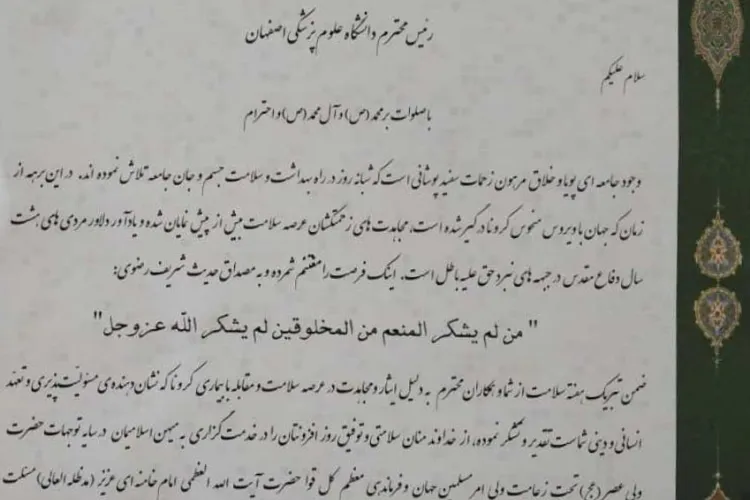 رئیس محترم دانشگاه علوم پزشکی اصفهان
سلام علیکم
با صلوات بر محمد (ص) و آل محمد (ص) و احترام
وجود جامعه ای پویا و خلاق مرهون زحمات سفید پوشانی است که شبانه روز در راه بهداشت و سلامت جسم و جان جامعه تلاش نموده اند، در این برهه از
زمان که جهان با ویروس منحوس کرونا درگیر شده است، مجاهدت های زحمتکشان عرصه سلامت بیش از پیش نمایان شده و یادآور دلاور مردی های هشت
سال دفاع مقدس در جبهه های نبرد حق علیه باطل است. اینک فرصت را مغتنم شمرده و به مصداق حدیث شریف رضوی:
" من لم یشکر المنعم من المخلوقین لم یشکر الله عزوجل"
ضمن تبریک هفته سلامت از شما و همکاران محترم به دلیل ایثار و مجاهدت در عرصه سلامت و مقابله با بیماری کرونا که نشان دهنده ی مسئولیت پذیری و تعهد
انسانی و دینی شماست تقدیر و تشکر نموده، از خداوند منان سلامتی و توفیق روز افزونتان را در خدمت گزاری به میهن اسلامیمان در سایه توجهات حضرت
ولی عصر (عج) تحت زعامت ولی امر مسلمین جهان و فرماندهی معظم کل قوا حضرت آیت الله العظمی امام خامنه ای عزیز (مدظله العالی) مسئلت